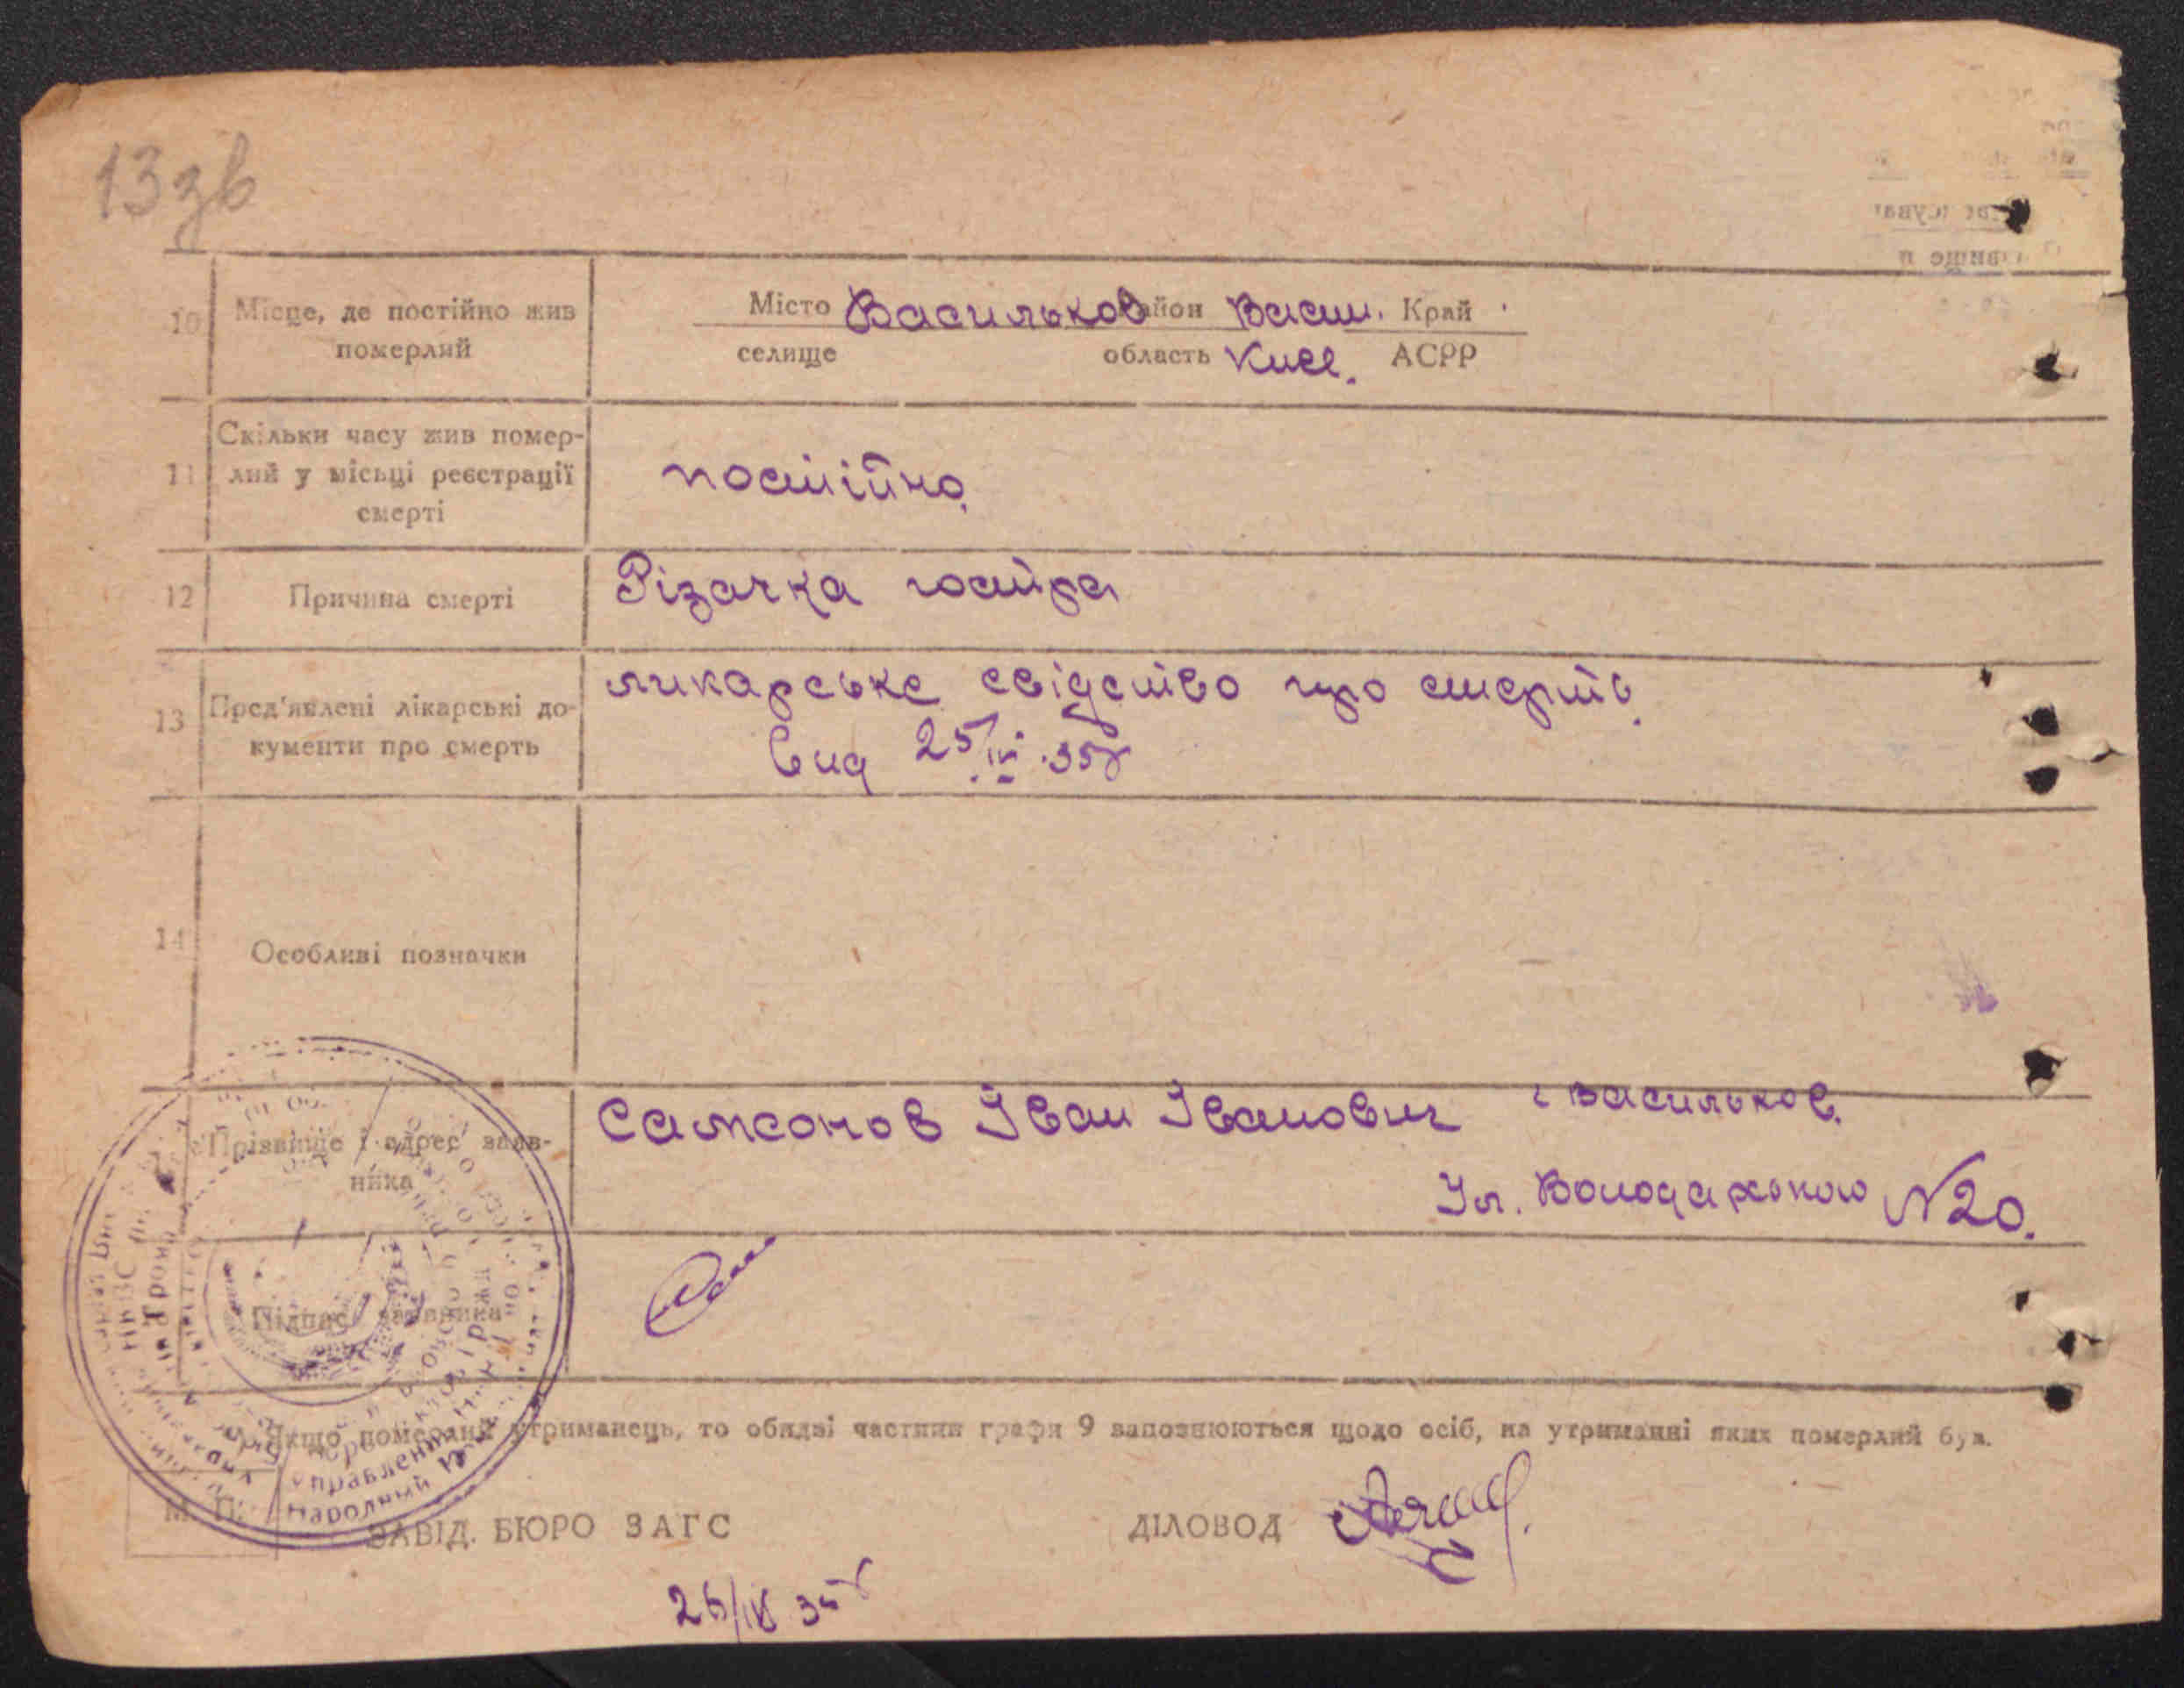 13зв
10 Місце, де постійно жив померлий
Місто Васильков район Васи. Край
селище область Киев. АСРР
11 Скільки часу жив помер-
лий у місьці реєстрації
смерті
постійно.
12 Причина смерті Різачка гостра
13 Пред'явлені лікарські до-
кументи про смерть
ликарське свідство про смерть.
вид 25/IV.35г
14 Особливі позначки
Прізвище і адрес заяв-
ника
Самсонов Іван Іванович г Васильков.
Ул. Володарского N 20.
Підпис заявника
Якщо померлий утриманець, то обидві частини графи 9 заповнюються щодо осіб, на утриманні яких померлий був.
М. П.
ЗАВІД. БЮРО ЗАГС ДІЛОВОД
26/IV 35г